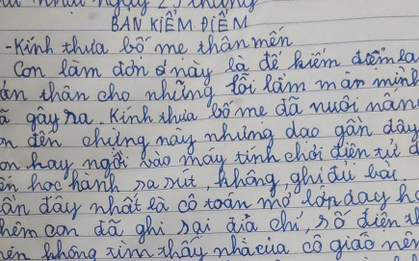 ngày 25 tháng
BẢN KIỂM ĐIỂM
-Kính thưa bố mẹ thân mến
Con làm đơn này là để kiểm điểm lại
thân cho những lỗi lầm mà mình
gây ra. Kính thưa bố mẹ đã nuôi nấng
đến chừng này nhưng dạo gần đây
hay ngồi vào máy tính chơi điện tử
học hành sa sút, không ghi đủ bài.
đây nhất là cô toán mở lớp dạy
thêm con đã ghi sai địa chỉ, số điện
không tìm thấy nhà của cô giáo nên